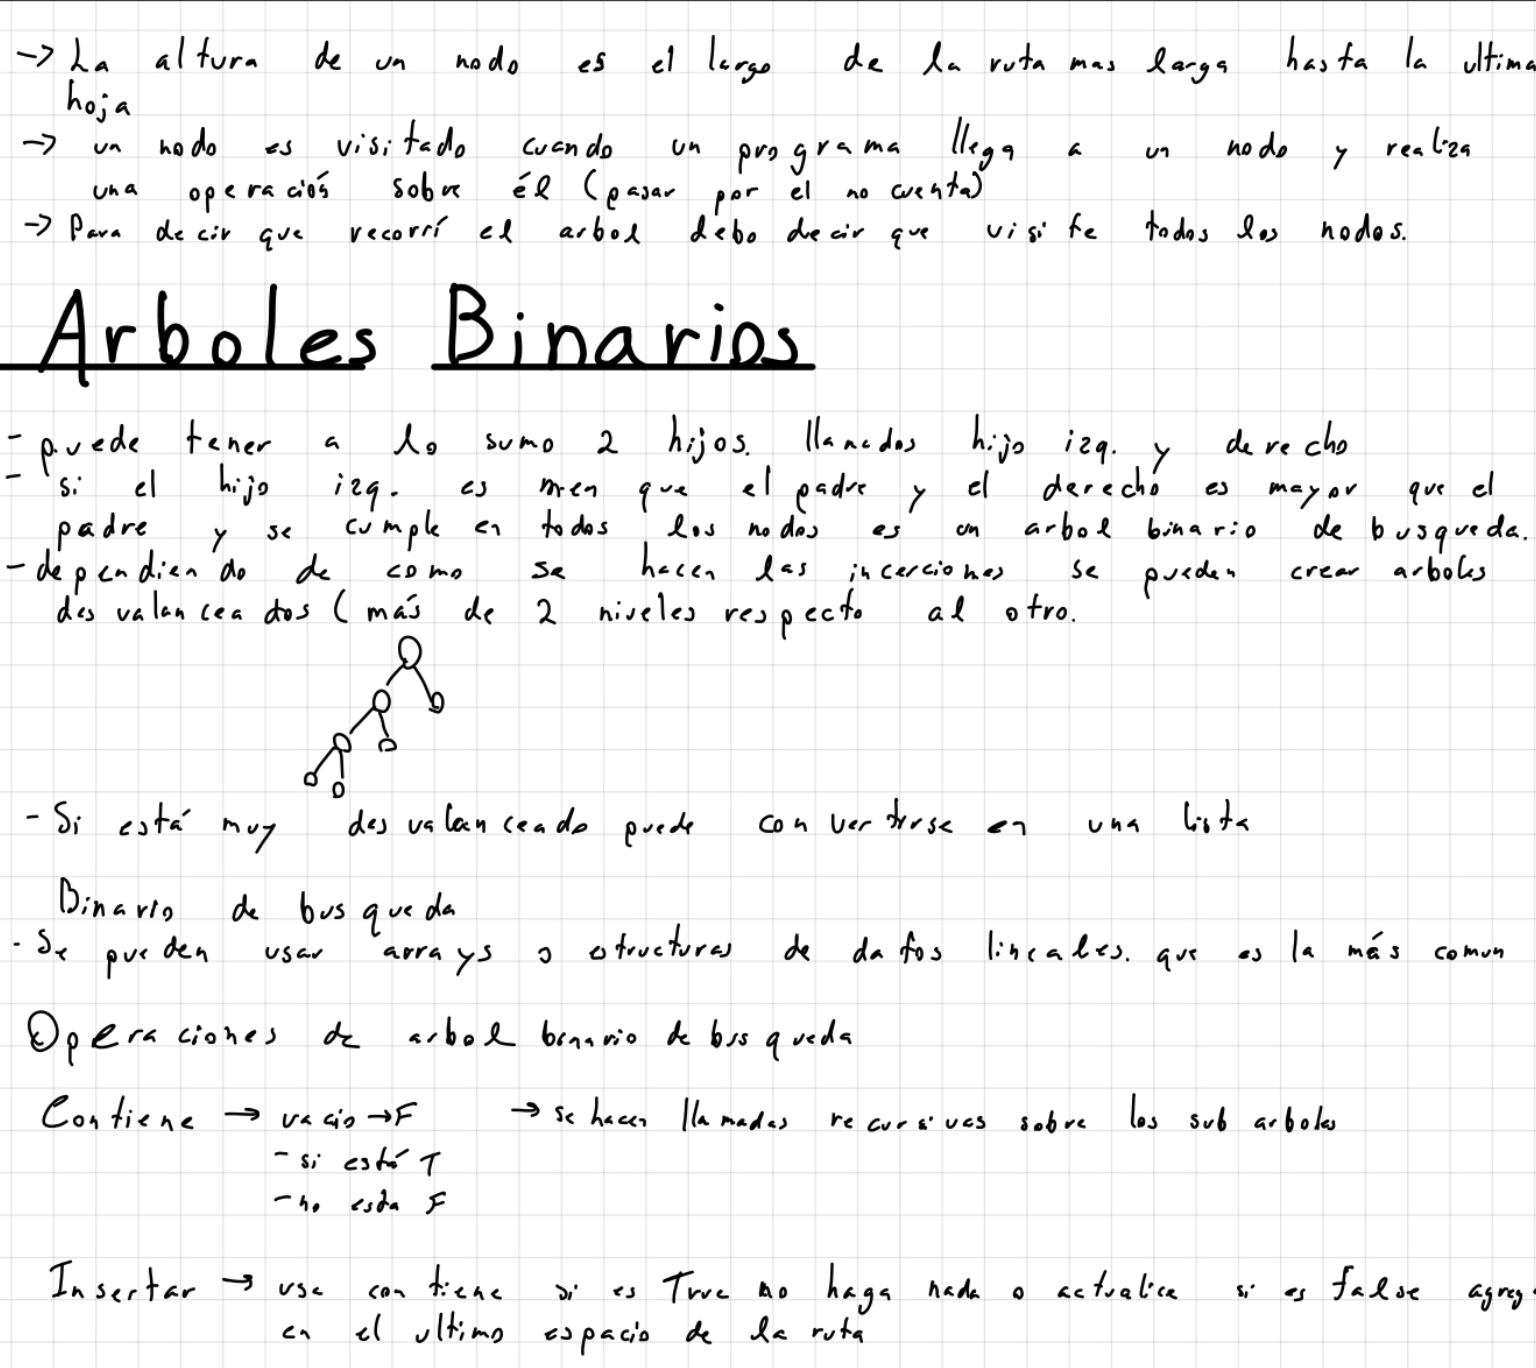 → La altura de un nodo es el largo de la ruta mas larga hasta la ultima
hoja
→ un nodo es visitado cuando un programa llega a un nodo y realiza
una operación sobre él (pasar por el no cuenta)
→ Para decir que recorrí el arbol debo decir que visite todos los nodos.
Arboles Binarios
- puede tener a lo sumo 2 hijos. llamados hijo izq. y derecho
- si el hijo izq. es men que el padre y el derecho es mayor que el
padre y se cumple en todos los nodos es un arbol binario de busqueda.
- dependiendo de como se hacen las incerciones se pueden crear arboles
desvalanceados (más de 2 niveles respecto al otro.
- Si está muy desvalanceado puede convertirse en una lista
Binario de busqueda
- Se pueden usar arrays o estructuras de datos lineales. que es la más comun
Operaciones de arbol binario de busqueda
Contiene → vacio → F → se hacen llamadas recursivas sobre los sub arboles
- si está T
- no esta F
Insertar → use contiene si es True no haga nada o actualice si es false agreg
en el ultimo espacio de la ruta